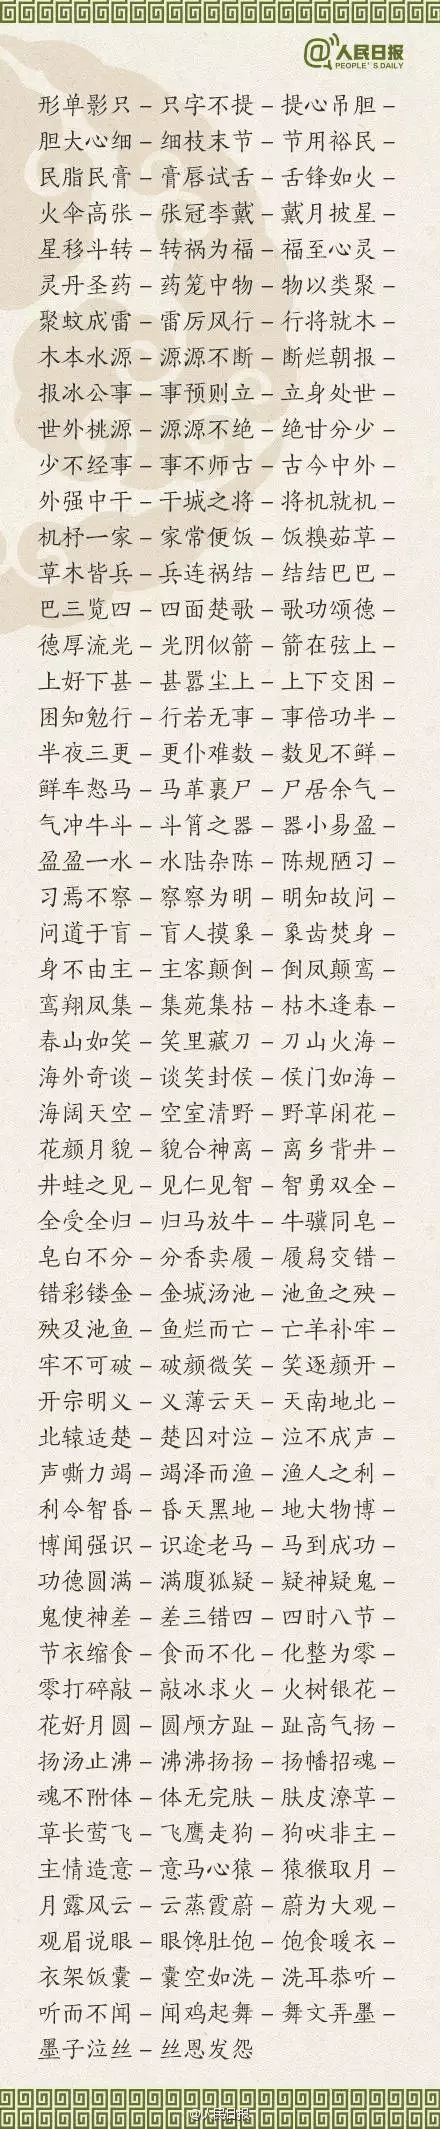 @人民日报
PEOPLE'S DAILY
形单影只–只字不提–提心吊胆–
胆大心细–细枝末节–节用裕民–
民脂民膏–膏唇试舌–舌锋如火–
火伞高张–张冠李戴–戴月披星–
星移斗转–转祸为福–福至心灵–
灵丹圣药–药笼中物–物以类聚–
聚蚊成雷–雷厉风行–行将就木–
木本水源–源源不断–断烂朝报–
报冰公事–事预则立–立身处世–
世外桃源–源源不绝–绝甘分少–
少不经事–事不师古–古今中外–
外强中干–干城之将–将机就机–
机杼一家–家常便饭–饭糗茹草–
草木皆兵–兵连祸结–结结巴巴–
巴三览四–四面楚歌–歌功颂德–
德厚流光–光阴似箭–箭在弦上–
上好下甚–甚嚣尘上–上下交困–
困知勉行–行若无事–事倍功半–
半夜三更–更仆难数–数见不鲜–
鲜车怒马–马革裹尸–尸居余气–
气冲牛斗–斗筲之器–器小易盈–
盈盈一水–水陆杂陈–陈规陋习–
习焉不察–察察为明–明知故问–
问道于盲–盲人摸象–象齿焚身–
身不由主–主客颠倒–倒凤颠鸾–
鸾翔凤集–集苑集枯–枯木逢春–
春山如笑–笑里藏刀–刀山火海–
海外奇谈–谈笑封侯–侯门如海–
海阔天空–空室清野–野草闲花–
花颜月貌–貌合神离–离乡背井–
井蛙之见–见仁见智–智勇双全–
全受全归–归马放牛–牛骥同皂–
皂白不分–分香卖履–履舄交错–
错彩镂金–金城汤池–池鱼之殃–
殃及池鱼–鱼烂而亡–亡羊补牢–
牢不可破–破颜微笑–笑逐颜开–
开宗明义–义薄云天–天南地北–
北辕适楚–楚囚对泣–泣不成声–
声嘶力竭–竭泽而渔–渔人之利–
利令智昏–昏天黑地–地大物博–
博闻强识–识途老马–马到成功–
功德圆满–满腹狐疑–疑神疑鬼–
鬼使神差–差三错四–四时八节–
节衣缩食–食而不化–化整为零–
零打碎敲–敲冰求火–火树银花–
花好月圆–圆颅方趾–趾高气扬–
扬汤止沸–沸沸扬扬–扬幡招魂–
魂不附体–体无完肤–肤皮潦草–
草长莺飞–飞鹰走狗–狗吠非主–
主情造意–意马心猿–猿猴取月–
月露风云–云蒸霞蔚–蔚为大观–
观眉说眼–眼馋肚饱–饱食暖衣–
衣架饭囊–囊空如洗–洗耳恭听–
听而不闻–闻鸡起舞–舞文弄墨–
墨子泣丝–丝恩发怨
@人民日报